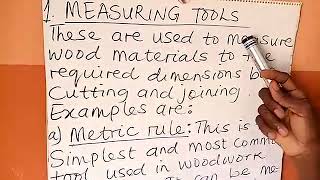 1. MEASURING TOOLS
These are used to measure
wood materials to the
required dimensions b
Cutting and joining.
Examples are:
a) Metric rule: This is
Simplest and most common
tool used in woodwork
can be me-